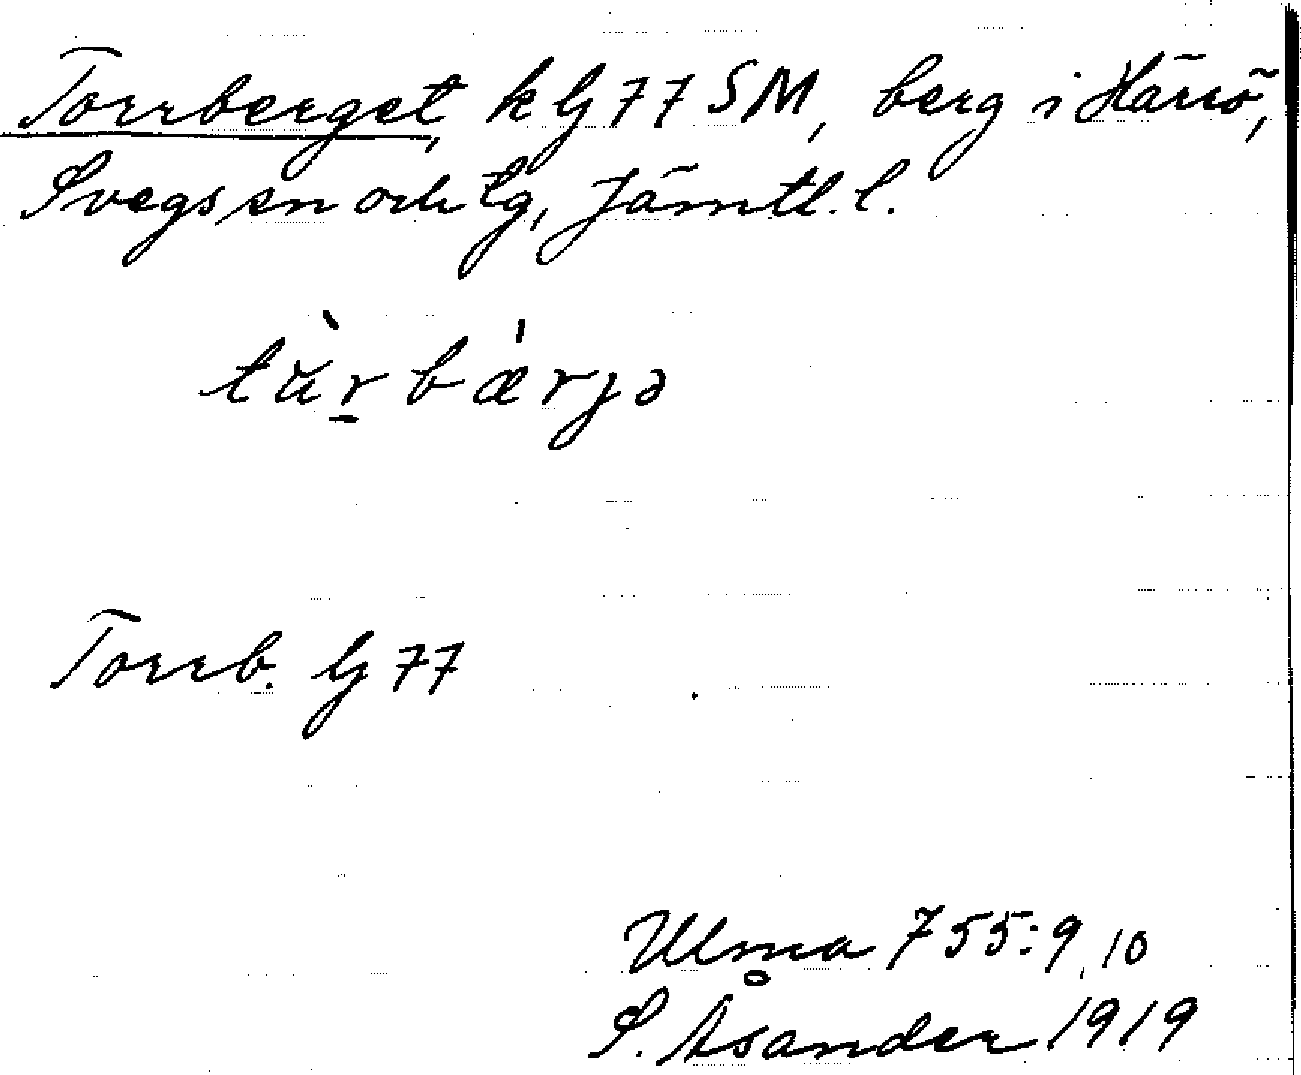 Torrberget, k G 77 SM, berg i Härrö,
Svegs sn och tg, Jämtl. l.
tùr̲bæ̍rjə
Torrb. G 77
Ulma 755:9, 10
S. Åsander 1919